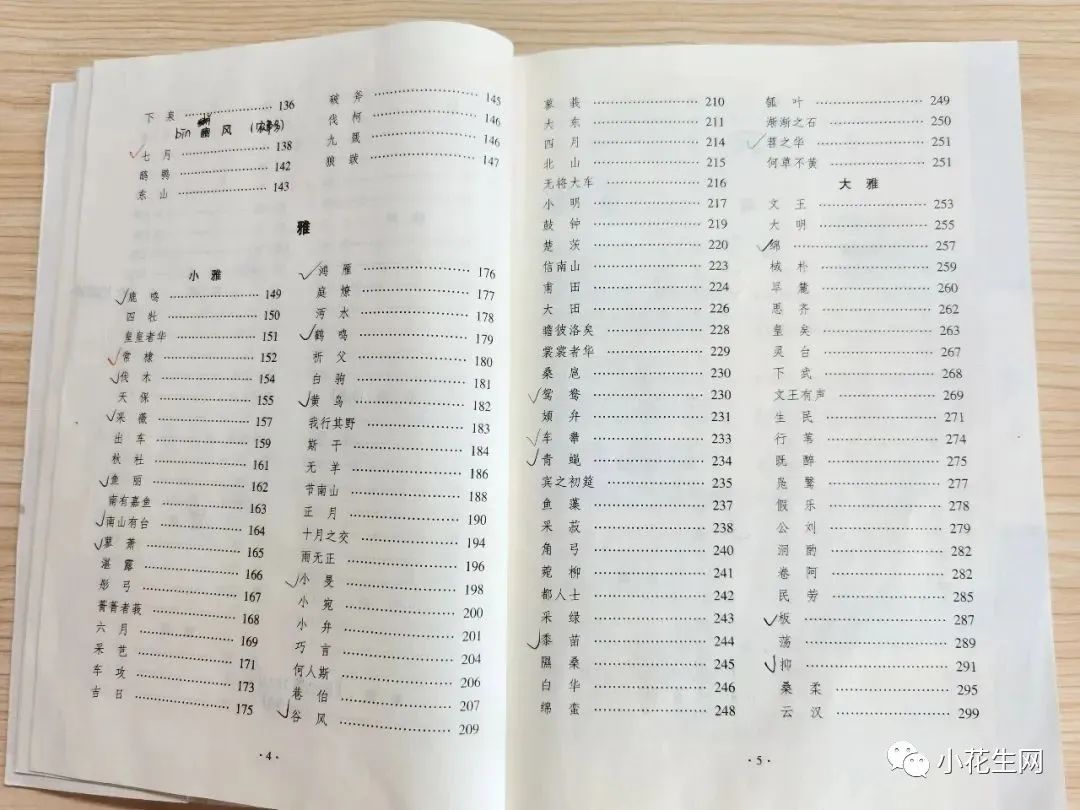 下 泉 136
bīn 豳 风
七 月 138
鸱 鸮 142
东 山 143
破 斧 145
伐 柯 146
九 罭 146
狼 跋 147
雅
小 雅
鹿 鸣 149
四 牡 150
皇皇者华 151
常 棣 152
伐 木 154
天 保 155
采 薇 157
出 车 159
杕 杜 161
鱼 丽 162
南有嘉鱼 163
南山有台 164
蓼 萧 165
湛 露 166
彤 弓 167
菁菁者莪 168
六 月 169
采 芑 171
车 攻 173
吉 日 175
鸿 雁 176
庭 燎 177
沔 水 178
鹤 鸣 179
祈 父 180
白 驹 181
黄 鸟 182
我行其野 183
斯 干 184
无 羊 186
节南山 188
正 月 190
十月之交 194
雨无正 196
小 旻 198
小 宛 200
小 弁 201
巧 言 204
何人斯 206
巷 伯 207
谷 风 209
· 4 ·
蓼 莪 210
大 东 211
四 月 214
北 山 215
无将大车 216
小 明 217
鼓 钟 219
楚 茨 220
信南山 223
甫 田 224
大 田 226
瞻彼洛矣 228
裳裳者华 229
桑 扈 230
鸳 鸯 230
頍 弁 231
车 舝 233
青 蝇 234
宾之初筵 235
鱼 藻 237
采 菽 238
角 弓 240
菀 柳 241
都人士 242
采 绿 243
黍 苗 244
隰 桑 245
白 华 246
绵 蛮 248
瓠 叶 249
渐渐之石 250
苕之华 251
何草不黄 251
大 雅
文 王 253
大 明 255
绵 257
棫 朴 259
旱 麓 260
思 齐 262
皇 矣 263
灵 台 267
下 武 268
文王有声 269
生 民 271
行 苇 274
既 醉 275
凫 鹥 277
假 乐 278
公 刘 279
泂 酌 282
卷 阿 282
民 劳 285
板 287
荡 289
抑 291
桑 柔 295
云 汉 299
· 5 ·
小花生网